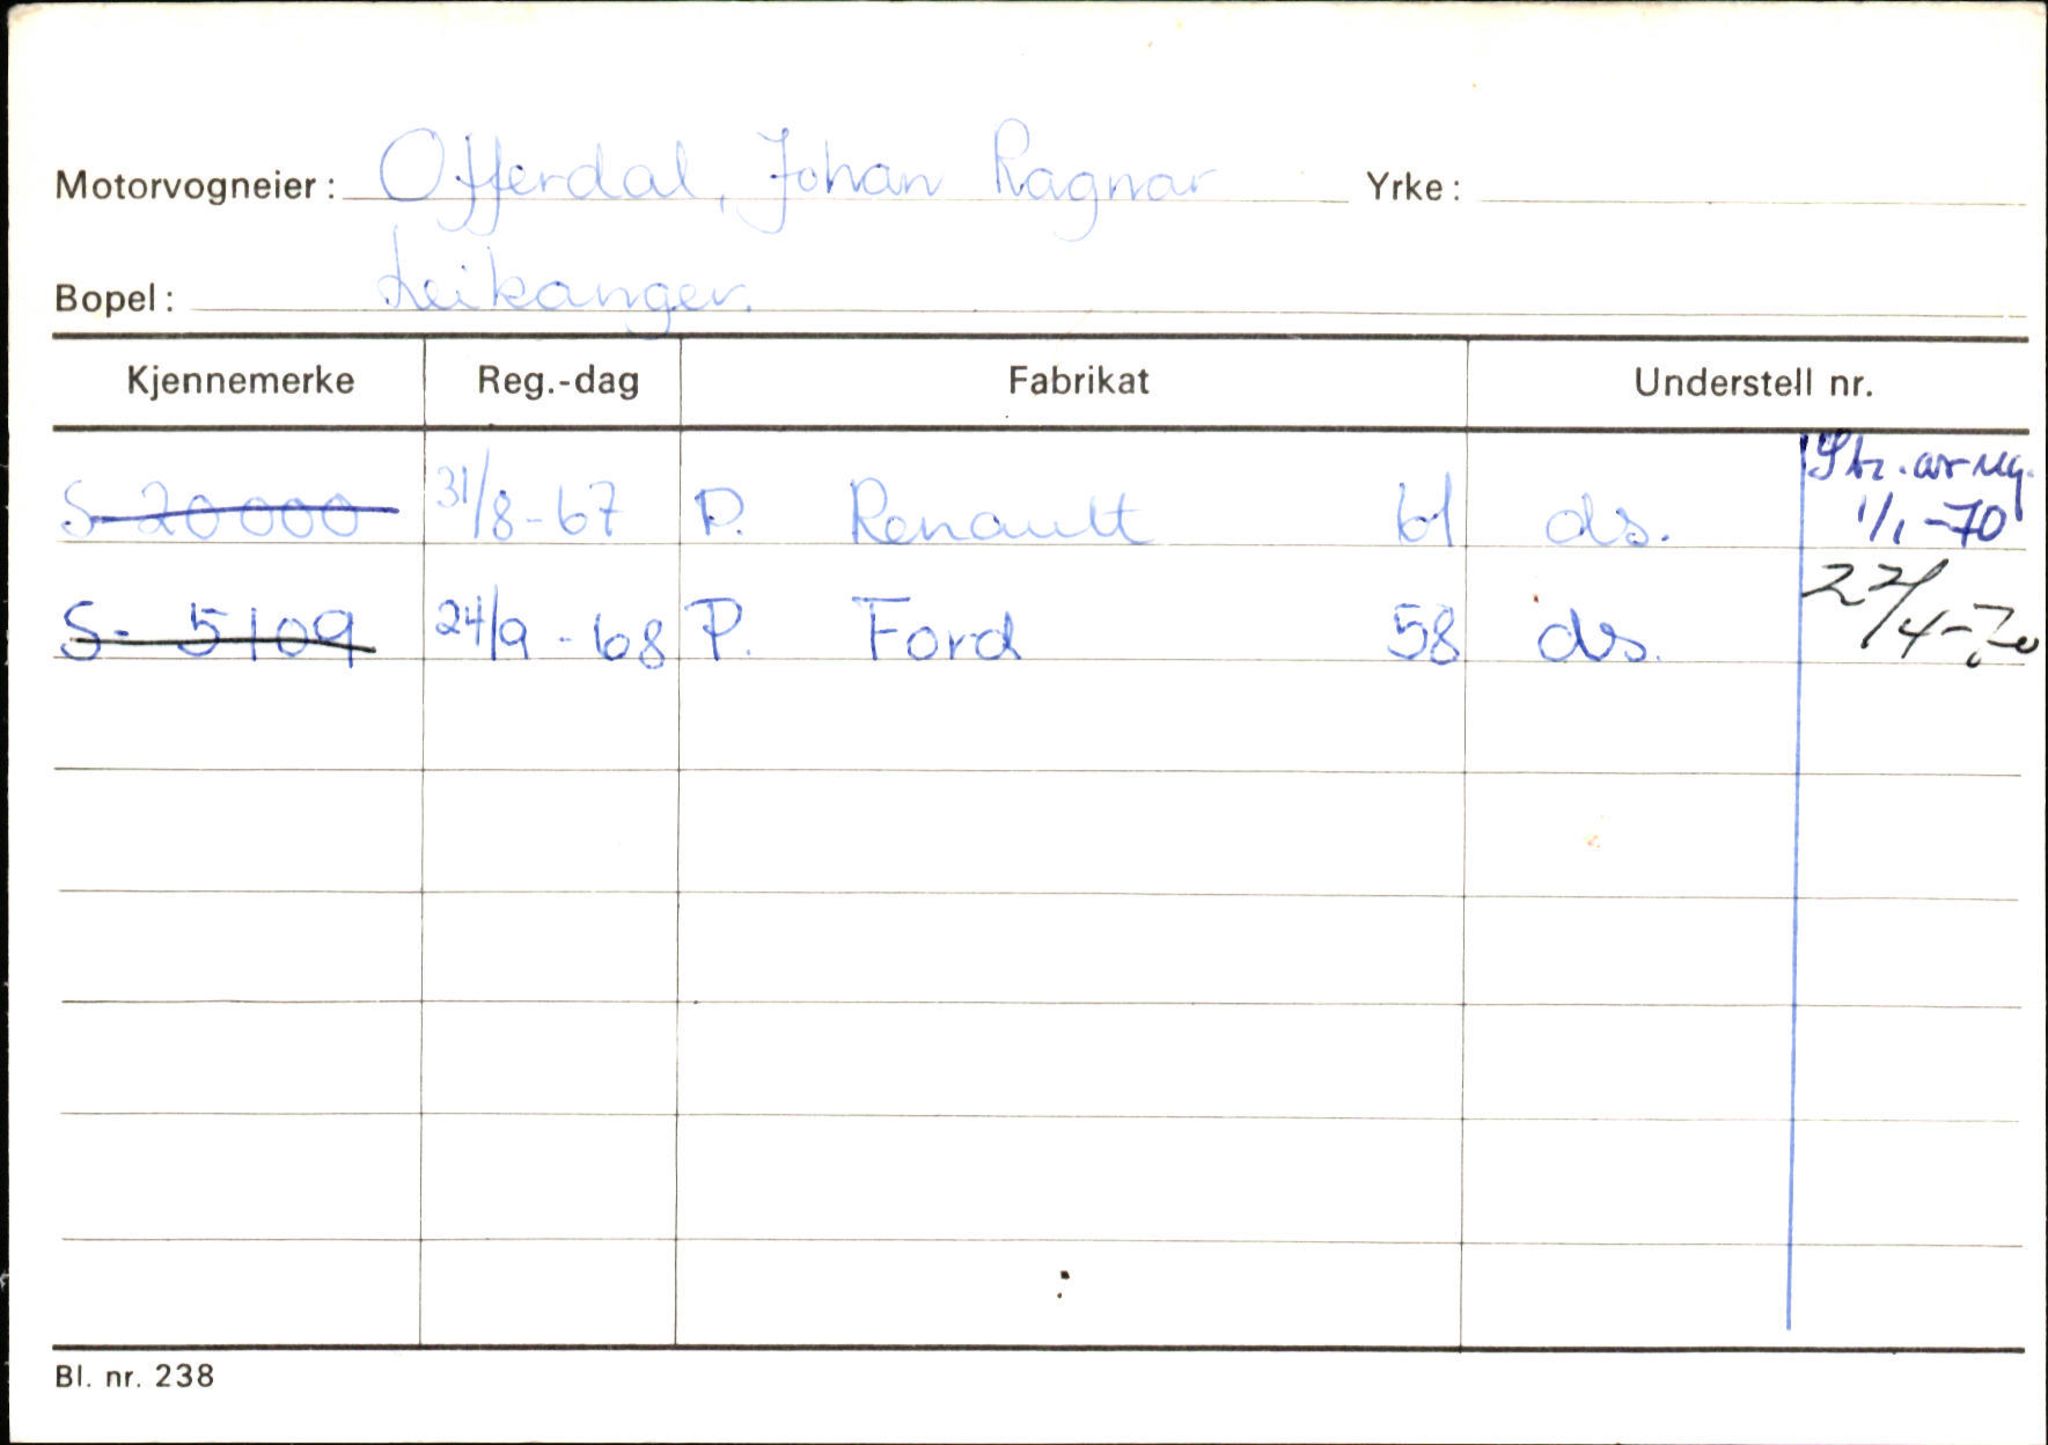 Motorvogneier: Offerdal, Johan Ragnar Yrke:
Bopel: Leikanger.
Kjennemerke Reg.-dag Fabrikat Understell nr.
S-20000 31/8-67 P. Renault 61 ds. Str. avreg. 1/1-70
S- 5109 24/9-68 P. Ford 58 ds. 22/4-70
Bl. nr. 238